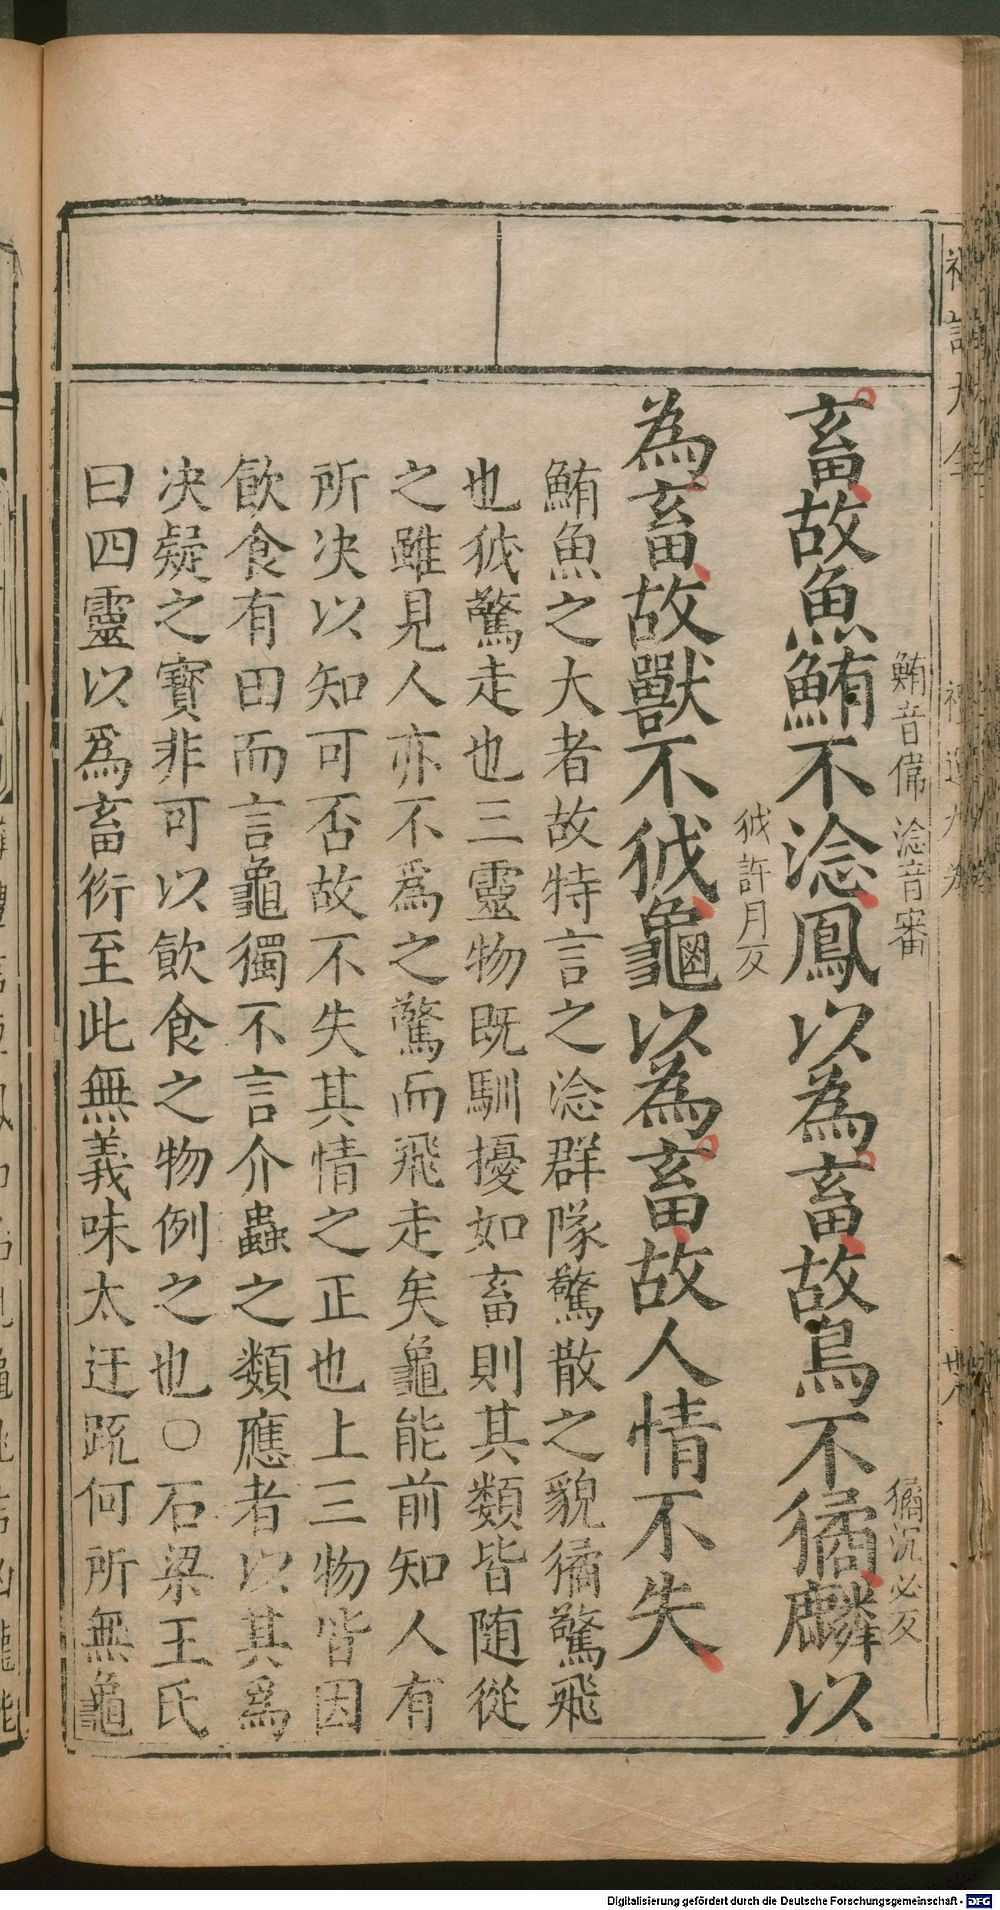 鮪音偉 淰音審 獝沉必反
畜故魚鮪不淰鳳以為畜故鳥不獝麟以
狘許月反
為畜故獸不狘龜以為畜故人情不失
鮪魚之大者故特言之淰群隊驚散之貌獝驚飛
也狘驚走也三靈物既馴擾如畜則其類皆随從
之雖見人亦不爲之驚而飛走矣龜能前知人有
所决以知可否故不失其情之正也上三物皆因
飲食有田而言龜獨不言介蟲之類應者以其爲
决疑之寳非可以飲食之物例之也○石梁王氏
曰四靈以爲畜衍至此無義味太迂疏何所無龜
Digitalisierung gefördert durch die Deutsche Forschungsgemeinschaft - DFG